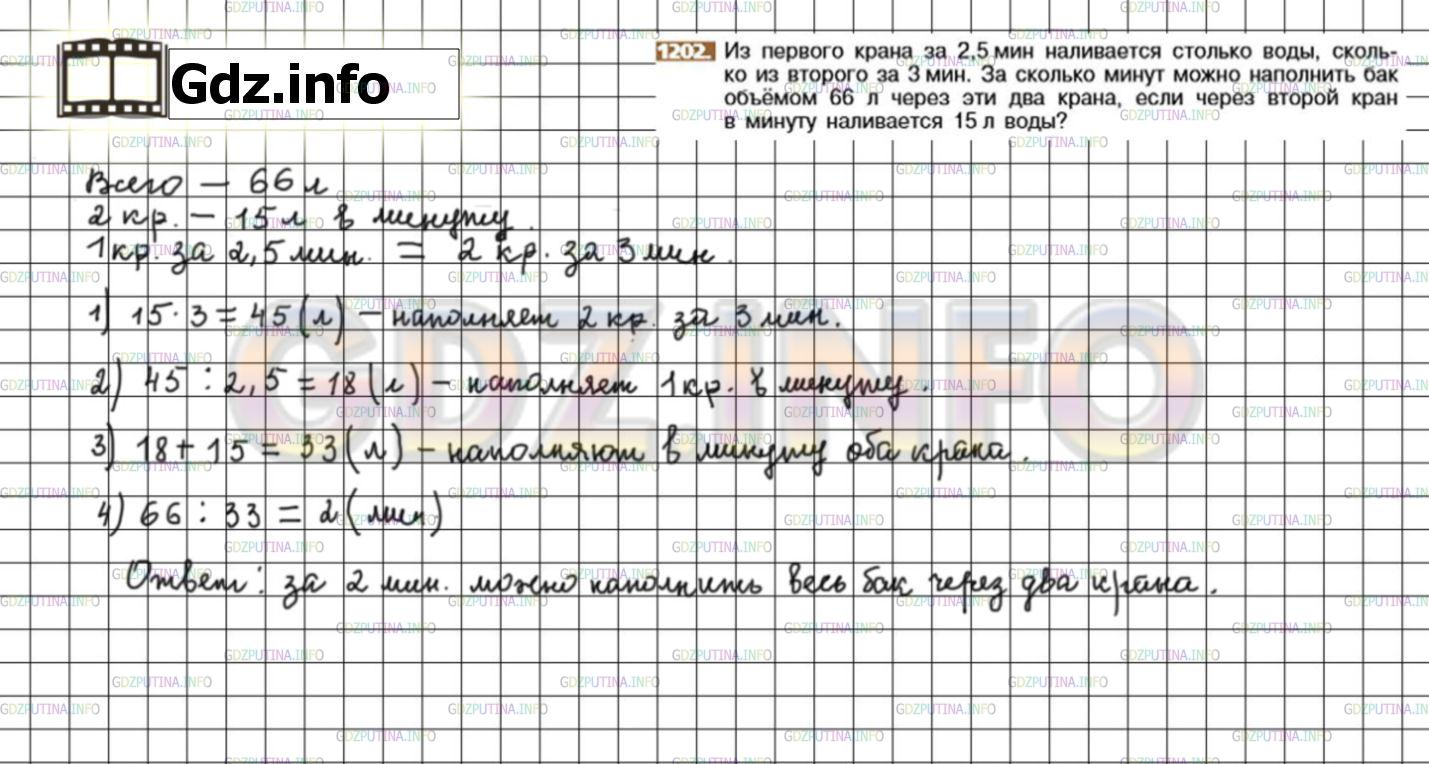 Gdz.info
1202. Из первого крана за 2,5 мин наливается столько воды, сколь-
ко из второго за 3 мин. За сколько минут можно наполнить бак
объёмом 66 л через эти два крана, если через второй кран
в минуту наливается 15 л воды?
Всего – 66 л
2 кр. – 15 л в минуту.
1 кр. за 2,5 мин. = 2 кр. за 3 мин.
1) 15 · 3 = 45 (л) – наполняет 2 кр. за 3 мин.
2) 45 : 2,5 = 18 (л) – наполняет 1 кр. в минуту.
3) 18 + 15 = 33 (л) – наполняют в минуту оба крана.
4) 66 : 33 = 2 (мин)
Ответ: за 2 мин. можно наполнить весь бак через два крана.
GDZ.INFO
GDZPUTINA.INFO